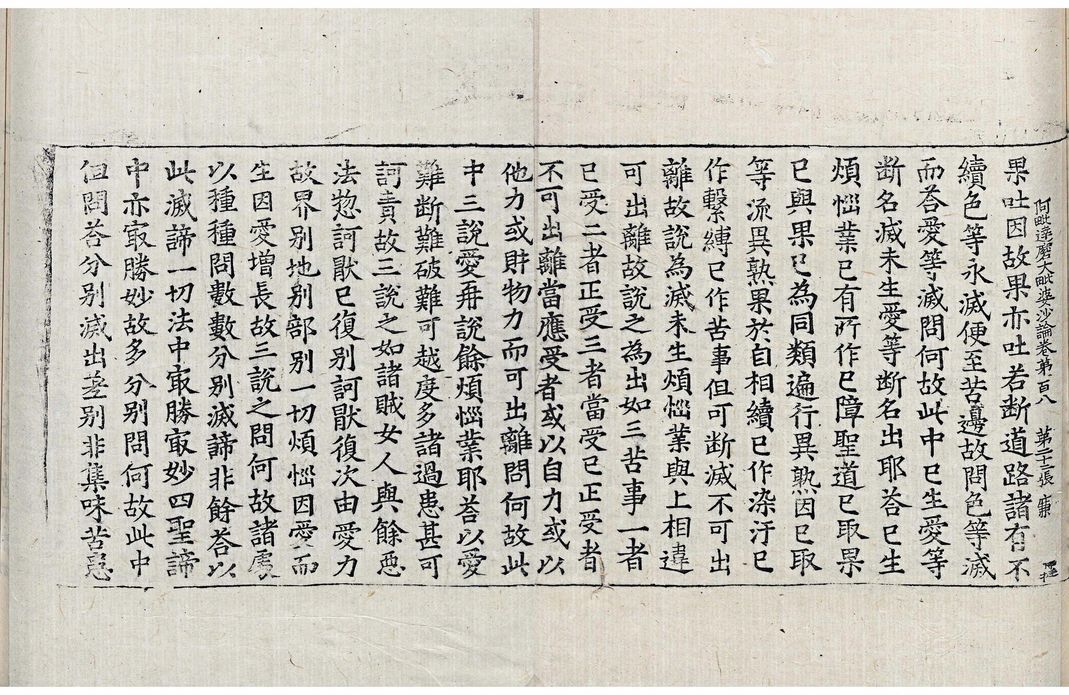 阿毗達磨大毗婆沙論卷第百八 張 廉
果吐因故果亦吐若断道路諸有不
續色等永滅便至苦邊故問色等滅
而荅愛等滅問何故此中巳生愛等
断名滅未生愛等断名出耶荅巳生
煩惱業巳有所作巳障聖道巳取果
巳與果巳為同類遍行異熟因巳取
等流異熟果於自相續巳作染汙巳
作繫縛巳作苦事但可断滅不可出
離故說為滅未生煩惱業與上相違
可出離故說之為出如三苦事一者
巳受二者正受三者當受巳正受者
不可出離當應受者或以自力或以
他力或財物力而可出離問何故此
中三說愛再說餘煩惱業耶荅以愛
難断難破難可越度多諸過患甚可
訶責故三說之如諸賊女人與餘惡
法惣訶猒巳復別訶猒復次由愛力
故界別地別部別一切煩惱因愛而
生因愛增長故三說之問何故諸處
以種種問數數分別滅諦非餘荅以
此滅諦一切法中㝡勝㝡妙四聖諦
中亦㝡勝妙故多分別問何故此中
但問荅分別滅出差別非集味苦患